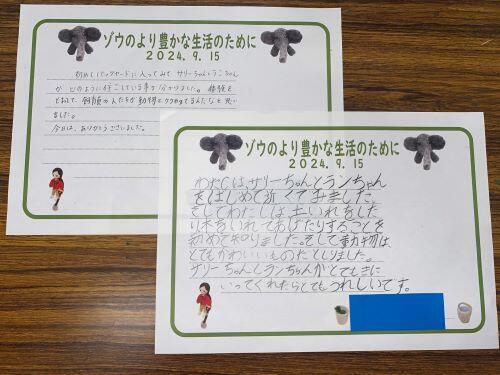 ゾウのより豊かな生活のために
2024.9.15
初めてバックヤードに入ってみて サリーちゃんとランちゃん
が どのように行こしている事が分かりました。
とおして、飼育の人たちが動物と
ました。
今日は、ありがとうございました。
ゾウのより豊かな生活のために
2024.9.15
わたしは、サリーちゃんとランちゃん
をはじめて近くでみました。
そしてわたしは土いれをした
り木をいれてあげたりすることを
初めて知りました。そして動物は、
とてもかわいいものだとしりました。
サリーちゃんとランちゃんがとてもきに
いってくれたらとてもうれしいです。